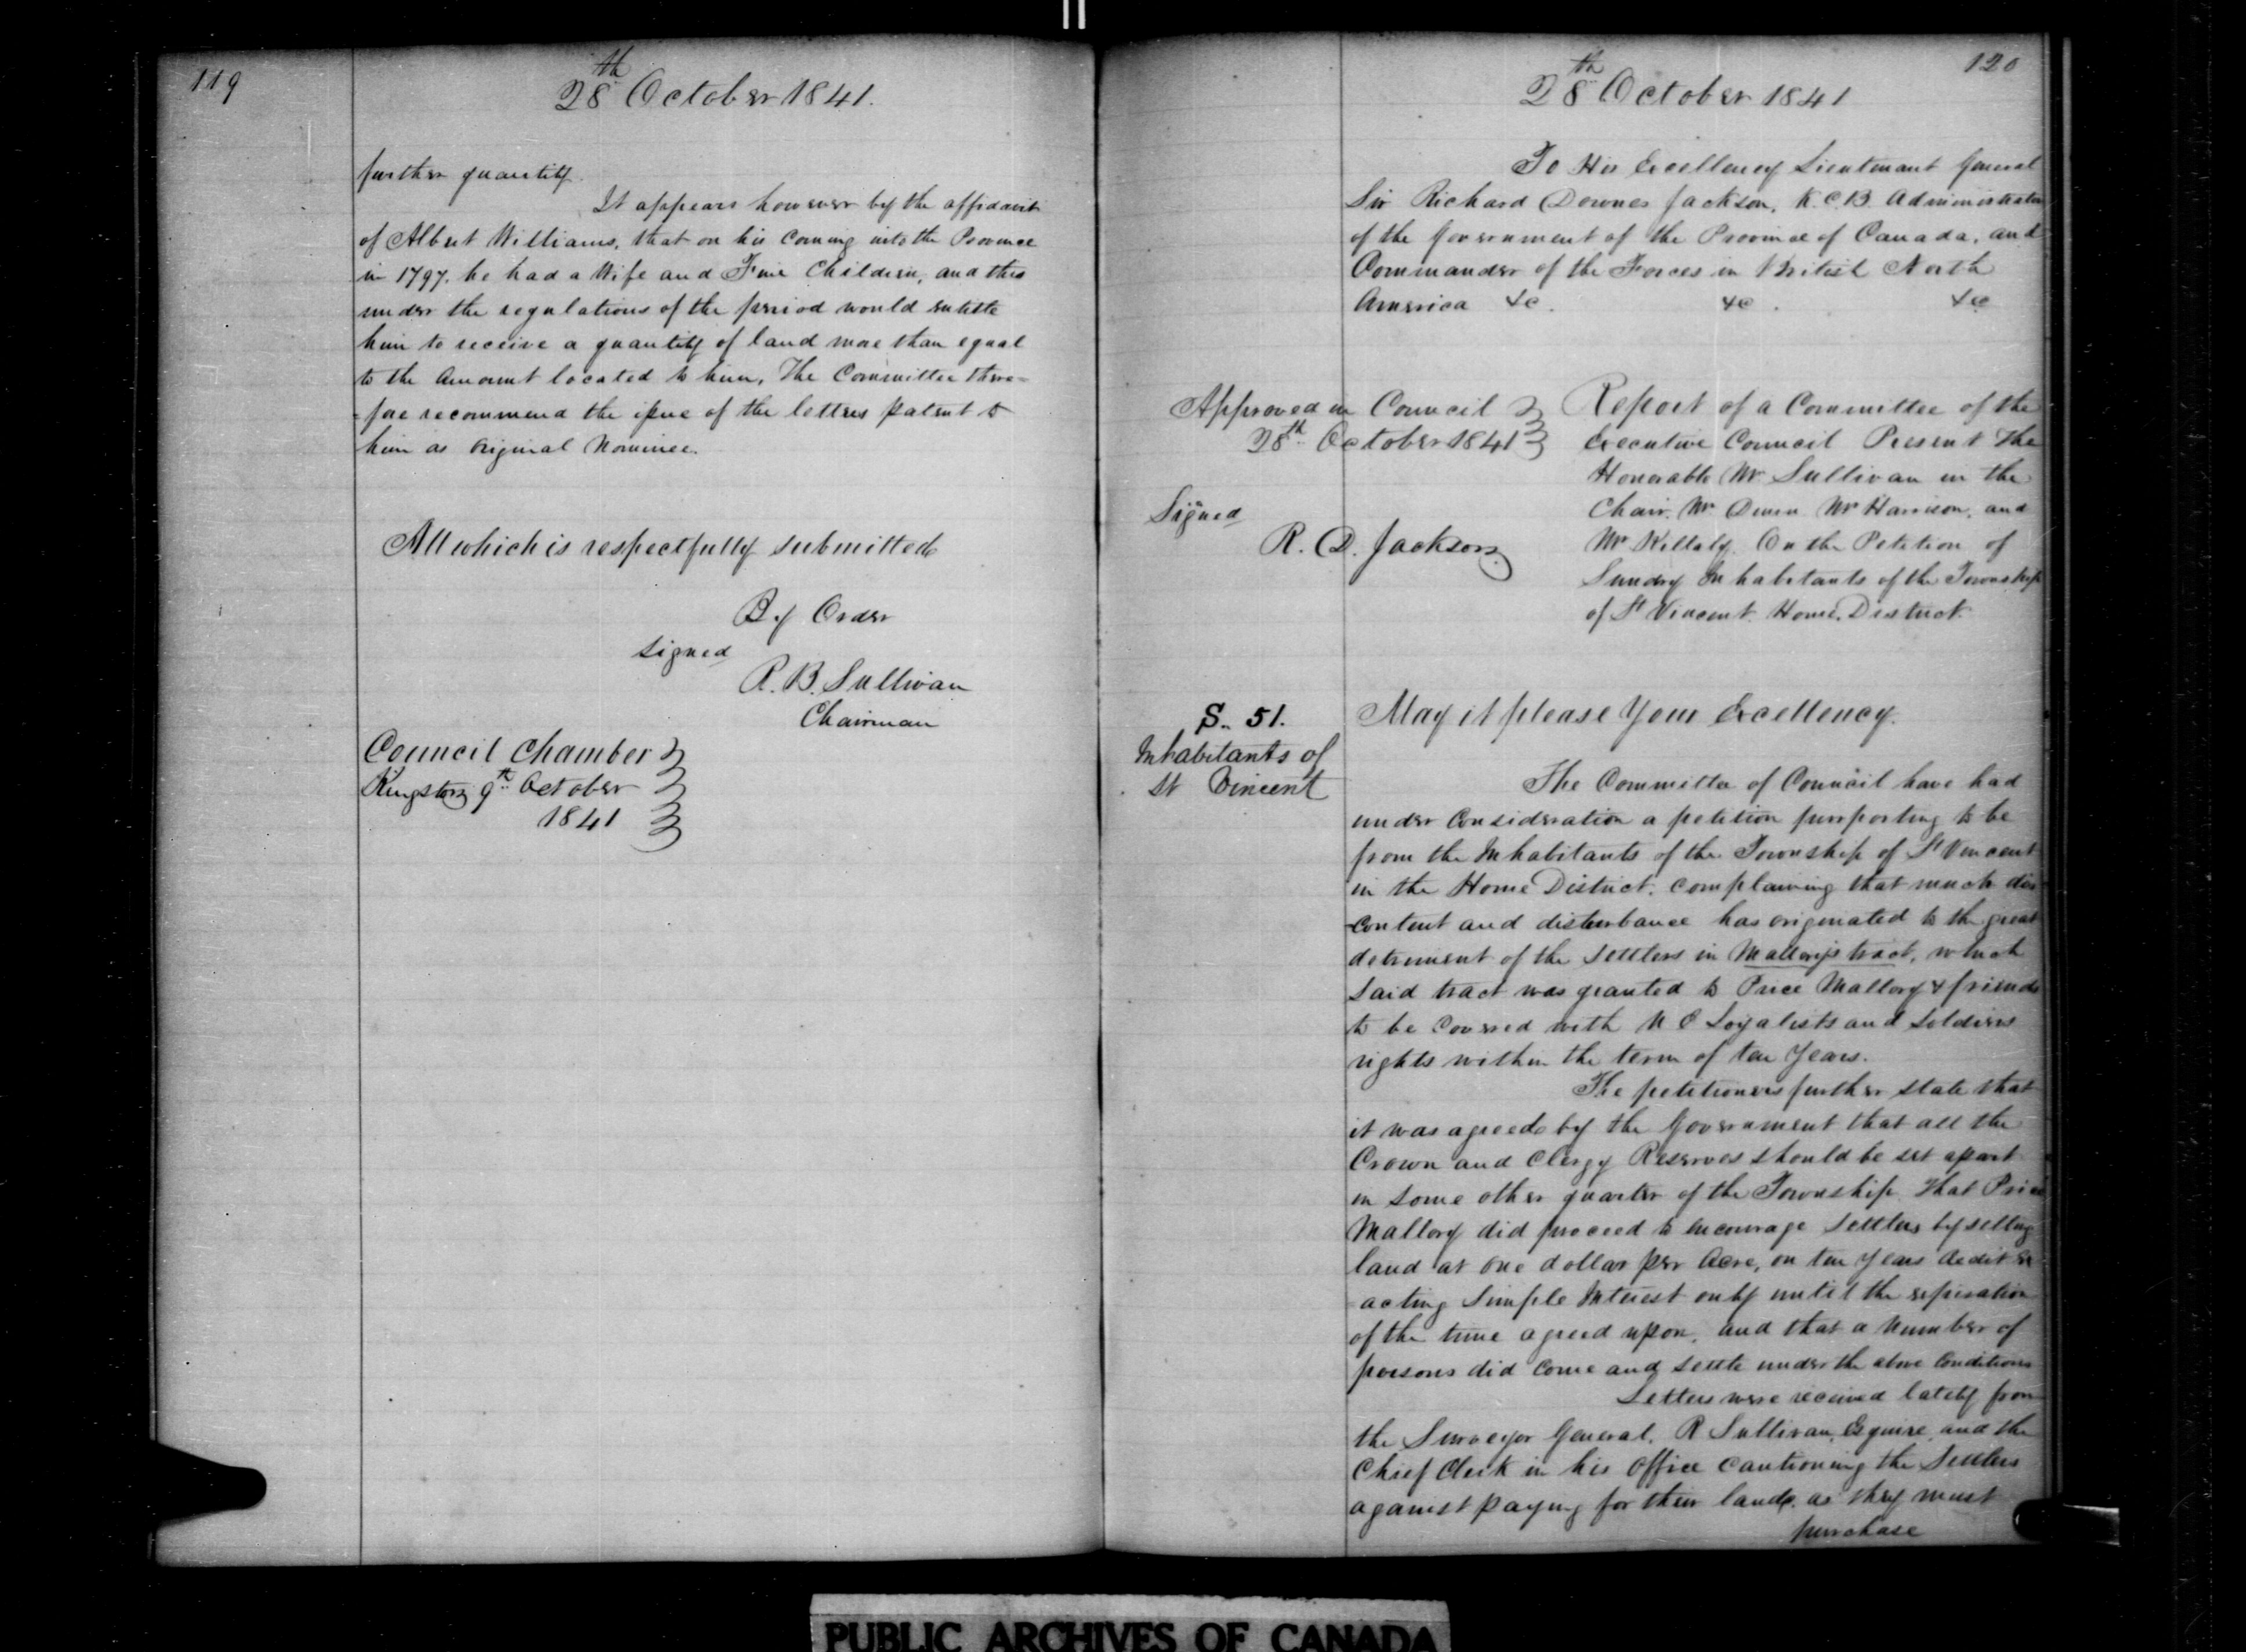 119
28th October 1841.
further quantity.
It appears however by the affidavit
of Albert Williams, that on his Coming into the Province
in 1797. he had a Wife and Five Children, and this
under the regulations of the period would entitle
him to receive a quantity of land more than equal
to the Amount located to him, The Committee there=
=fore recommend the issue of the letters patent to
him as Original Nominee.
All which is respectfully submitted
By Order
signed
R. B. Sullivan
Chairman
Council Chamber
Kingston 9th October
1841
120
28th October 1841
To His Excellency Lieutenant General
Sir Richard Downes Jackson, K.C.B. Administrator
of the Government of the Province of Canada, and
Commander of the Forces in British North
America &c. &c. &c
Approved in Council
28th October 1841
Signed
R. D. Jackson
Report of a Committee of the
Executive Council Present The
Honorable Mr Sullivan in the
Chair, Mr Dunn Mr Harrison, and
Mr Killaly. On the Petition of
Sundry Inhabitants of the Township
of St Vincent. Home District.
S. 51.
Inhabitants of
St Vincent
May it please Your Excellency.
The Committee of Council have had
under Consideration a petition purporting to be
from the Inhabitants of the Township of St Vincent
in the Home District. complaining that much dis-
-content and disturbance has originated to the great
detriment of the settlers in Mallory's tract, which
said tract was granted to Price Mallory & friends
to be Covered with U E Loyalists and Soldiers
rights within the term of ten Years.
The petitioners further state that
it was agreed by the Government that all the
Crown and Clergy Reserves should be set apart
in some other quarter of the Township. That Price
Mallory did proceed to encourage Settlers by selling
land at one dollar per Acre, on ten Years Credit ex
acting Simple Interest only until the expiration
of the time agreed upon, and that a Number of
persons did Come and settle under the above Conditions
Letters were received lately from
the Surveyor General. R Sullivan, Esquire, and the
Chief Clerk in his Office Cautioning the Settlers
against paying for their lands. as they must
purchase
PUBLIC ARCHIVES OF CANADA